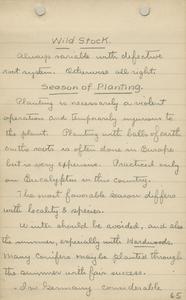 Wild Stock.
Always variable with defective
root system. Otherwise all right.
Season of Planting.
Planting is necessarily a violent
operation and temporarily injurious to
the plant. Planting with balls of earth
on the roots is often done in Europe
but is very expensive. Practiced only
on Eucalyptus in this country.
The most favorable season differs
with locality & species.
Winter should be avoided, and also
the summer, especially with Hardwoods.
Many Conifers may be planted through
the summer with fair success.
In Germany considerable
65